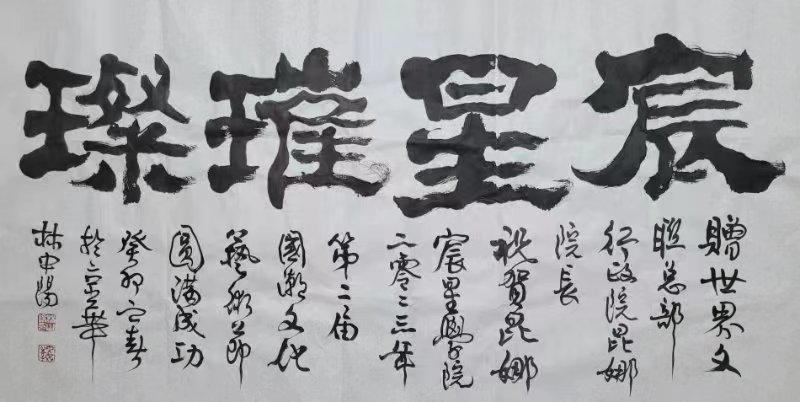 宸星璀璨
贈世界文
联总部
行政院昆娜
院长
祝贺昆娜
宸星學院
二零二三年
第二届
國潮文化
藝術节
圆满成功
癸卯春
於京華
林中陽